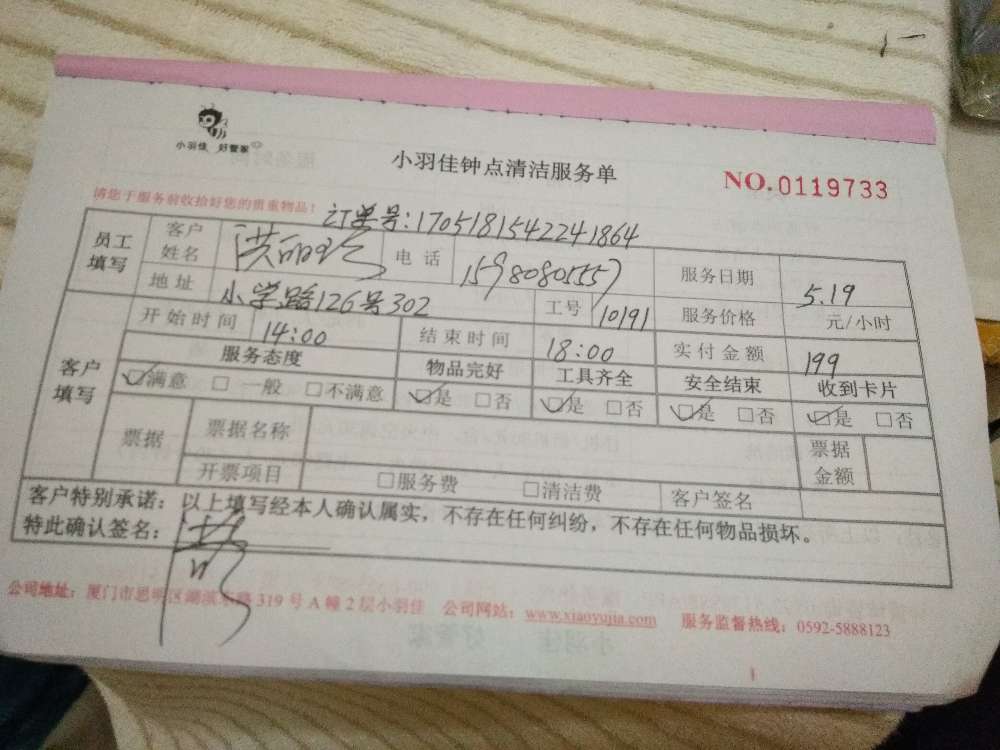 小羽佳 好管家
小羽佳钟点清洁服务单
NO.0119733
请您于服务前收拾好您的贵重物品!
订单号:1705181542241864
员工填写 客户姓名 洪丽 电话 15980805557 服务日期 5.19
地址 小学路126号302 工号 10191 服务价格 元/小时
客户填写 开始时间 14:00 结束时间 18:00 实付金额 199
服务态度 物品完好 工具齐全 安全结束 收到卡片
☑满意 □一般 □不满意 ☑是 □否 ☑是 □否 ☑是 □否 ☑是 □否
票据 票据名称 票据金额
开票项目 □服务费 □清洁费 客户签名
客户特别承诺:以上填写经本人确认属实,不存在任何纠纷,不存在任何物品损坏。
特此确认签名:
公司地址:厦门市思明区湖滨东路319号A幢2层小羽佳 公司网站:www.xiaoyujia.com 服务监督热线:0592-5888123